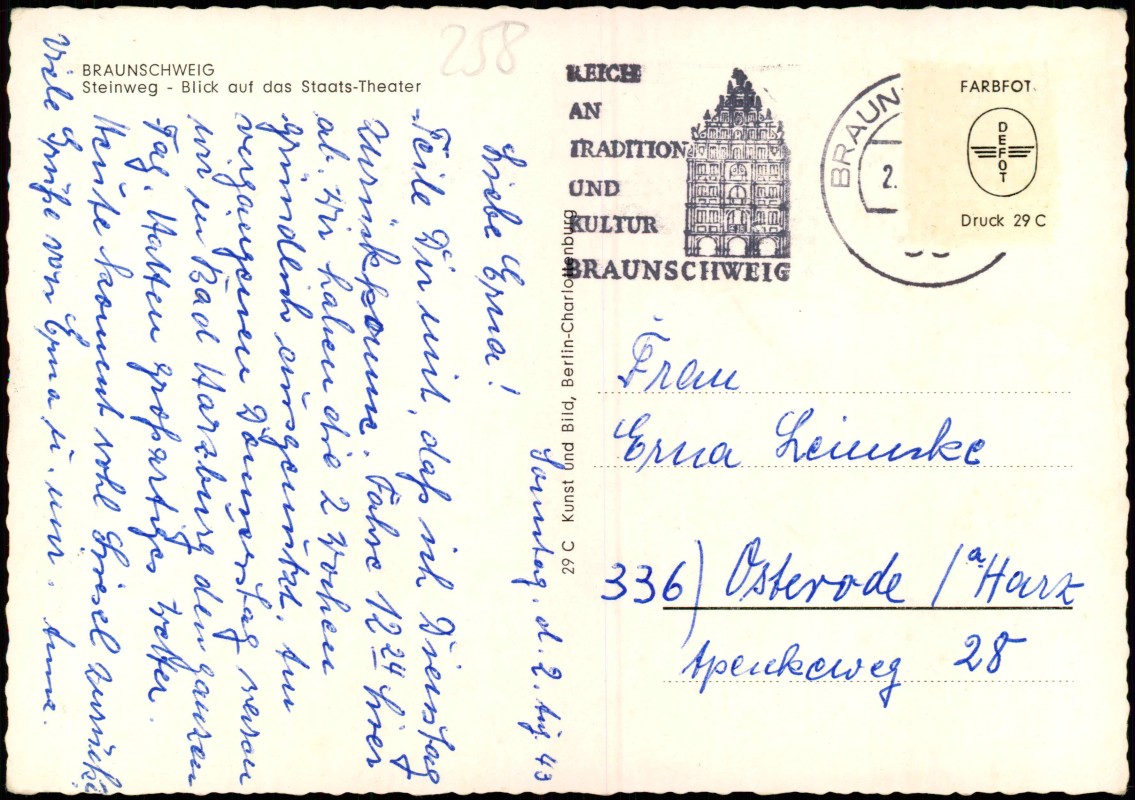 BRAUNSCHWEIG
Steinweg - Blick auf das Staats-Theater
258
Sonntag, d. 2. Aug. 43
Liebe Erna!
Teile Dir mit, daß ich Dienstag
zurückkomme. Fahre 12 24 hier
ab. Wir haben die 2 Wochen
gründlich ausgenutzt. Am
vergangenen Donnerstag waren
wir in Bad Harzburg den ganzen
Tag. Hatten großartiges Wetter.
Heute kommt wohl Liesel zurück.
Viele Grüße von Erna u. mir. Anna.
29 C Kunst und Bild, Berlin-Charlottenburg
REICH
AN
TRADITION
UND
KULTUR
BRAUNSCHWEIG
BRAUN
2.
FARBFOT
DEFOT
Druck 29 C
Frau
Erna Leimcke
336) Osterode /a Harz
28